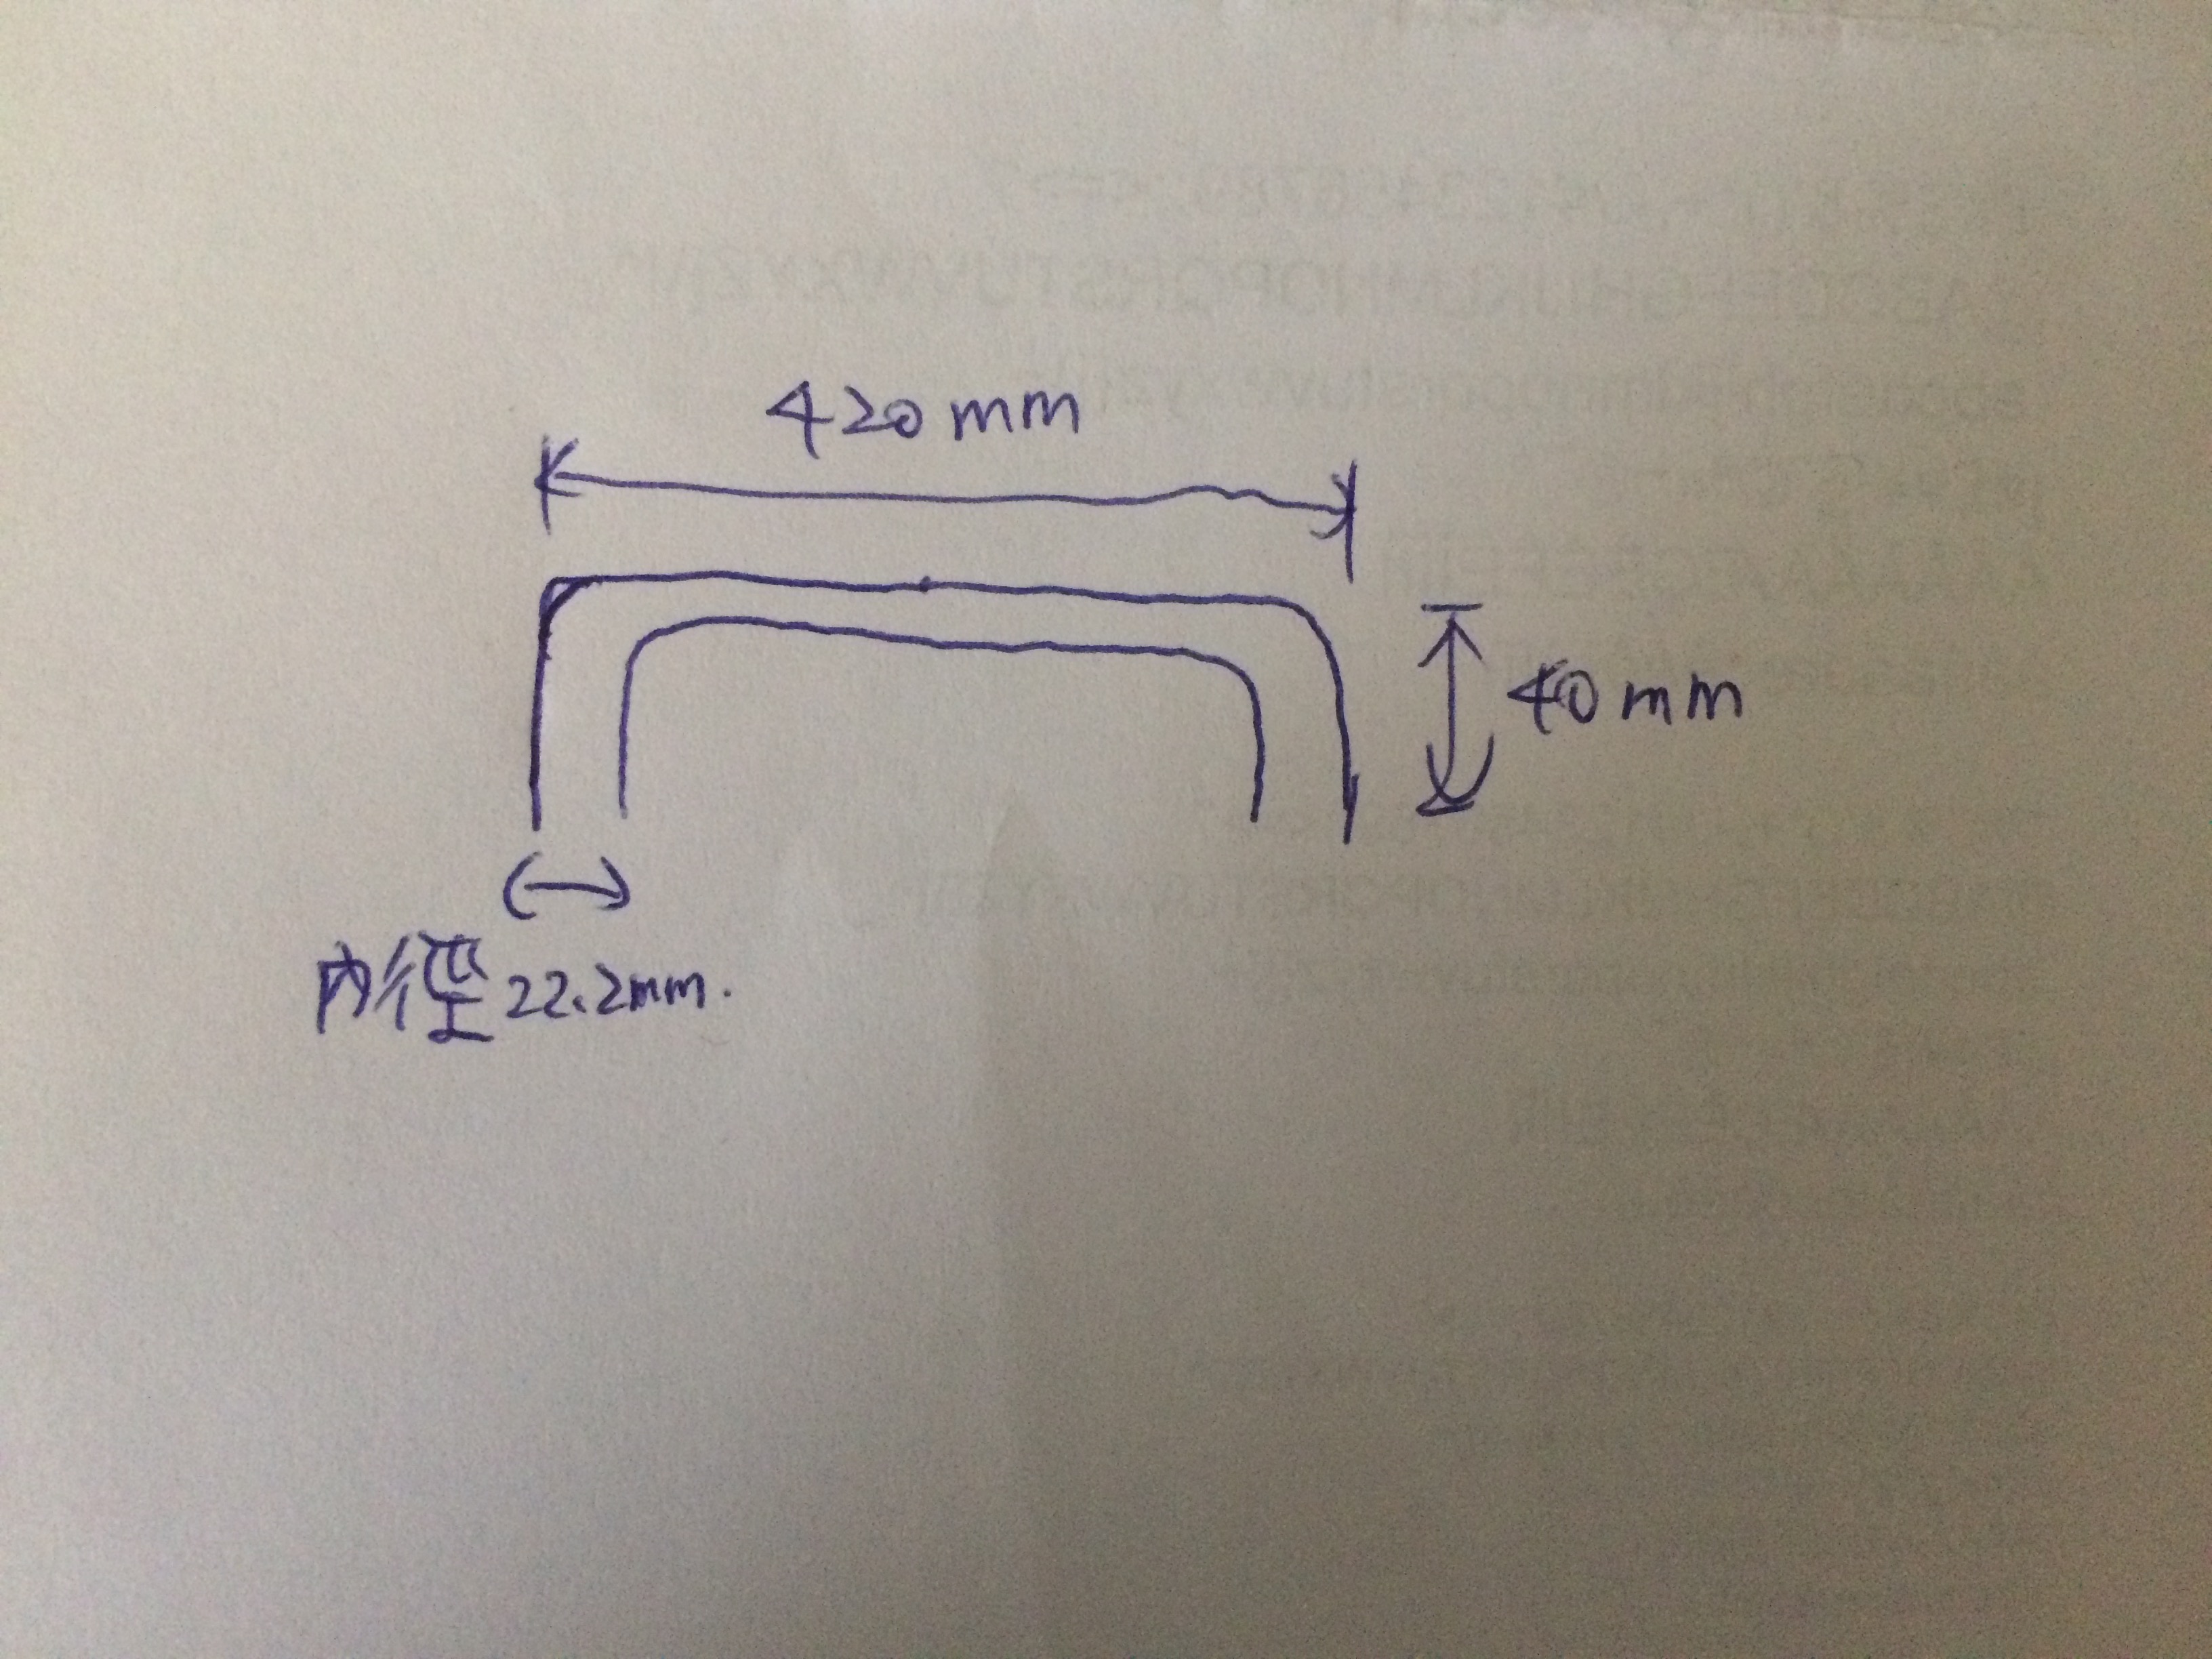 420mm
40mm
内徑22.2mm.